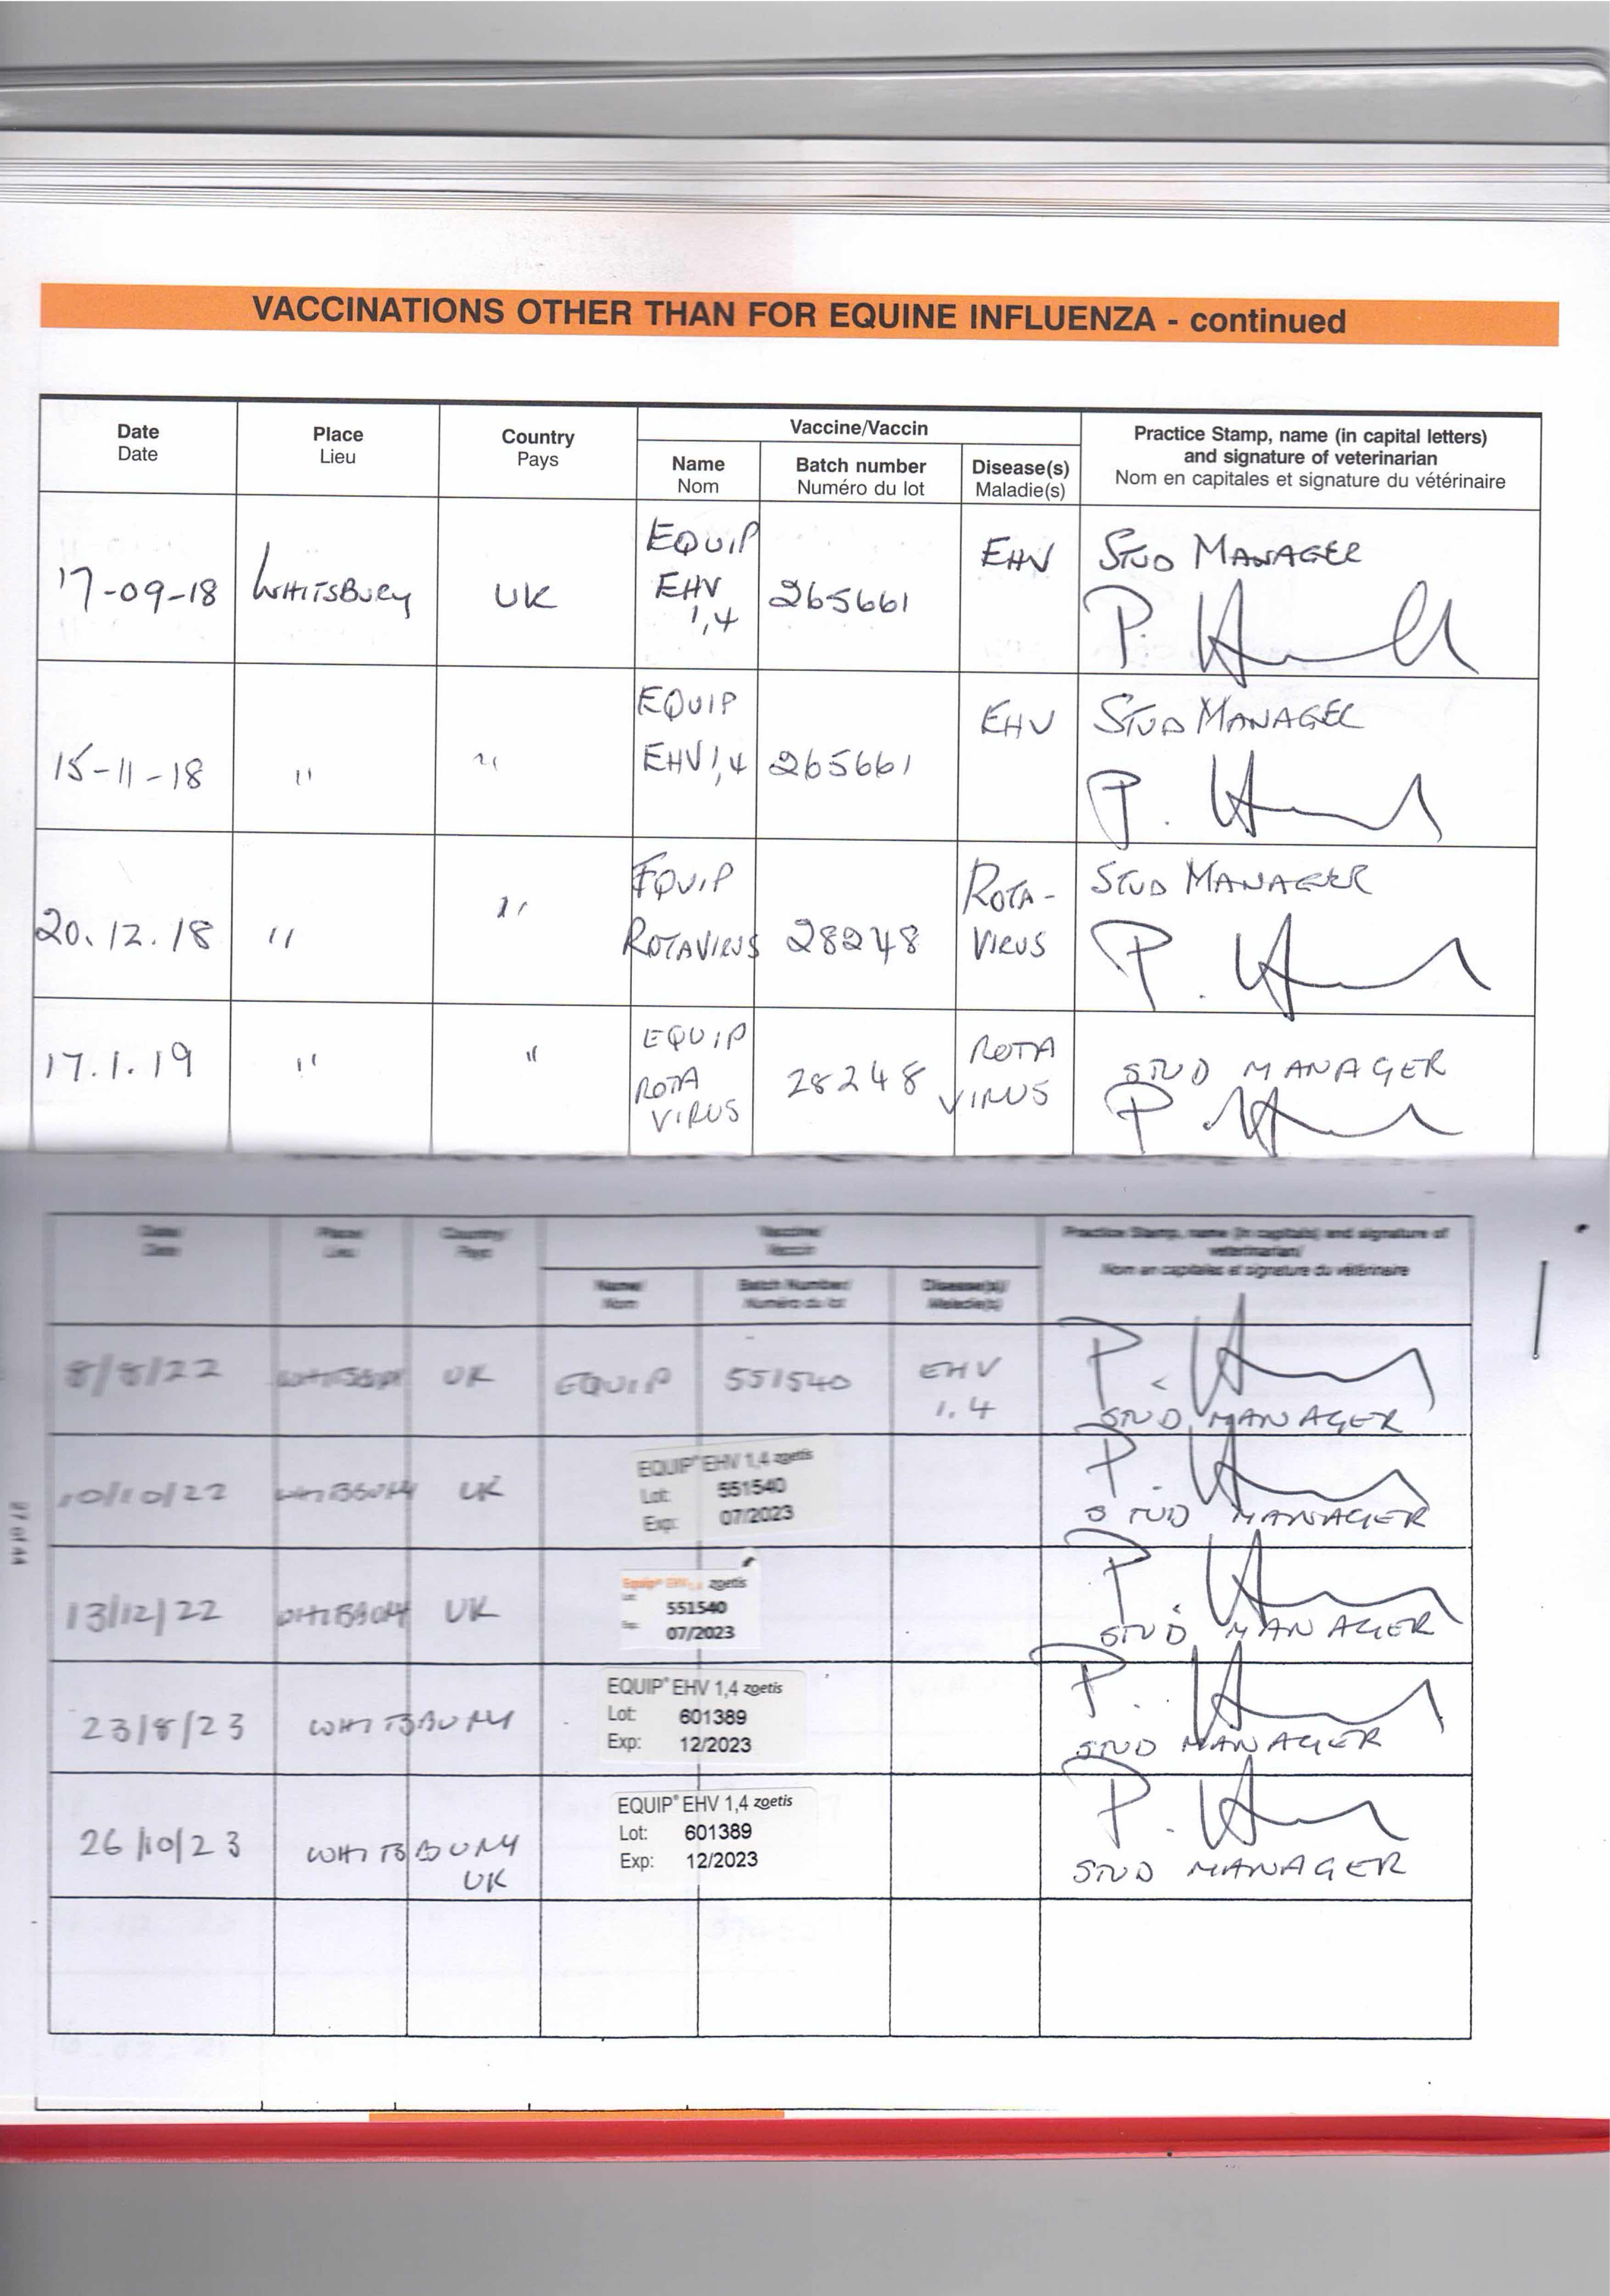 VACCINATIONS OTHER THAN FOR EQUINE INFLUENZA - continued
Date Date
Place Lieu
Country Pays
Vaccine/Vaccin
Name Nom
Batch number Numéro du lot
Disease(s) Maladie(s)
Practice Stamp, name (in capital letters)
and signature of veterinarian
Nom en capitales et signature du vétérinaire
17-09-18 WHITSBURY UK EQUIP EHV 1,4 265661 EHV STUD MANAGER
15-11-18 " " EQUIP EHV 1,4 265661 EHV STUD MANAGER
20.12.18 " " EQUIP ROTAVIRUS 28248 ROTA-VIRUS STUD MANAGER
17.1.19 " " EQUIP ROTA VIRUS 28248 ROTA VIRUS STUD MANAGER
Date/ Date
Place/ Lieu
Country/ Pays
Vaccine/ Vaccin
Name/ Nom
Batch Number/ Numéro du lot
Disease(s)/ Maladie(s)
Practice Stamp, name (in capitals) and signature of
veterinarian/
Nom en capitales et signature du vétérinaire
8/8/22 WHITSBURY UK EQUIP 551540 EHV 1,4 STUD MANAGER
10/10/22 WHITSBURY UK EQUIP® EHV 1,4 zoetis
Lot: 551540
Exp: 07/2023
STUD MANAGER
13/12/22 WHITSBURY UK Equip® EHV 1,4 zoetis
551540
07/2023
STUD MANAGER
23/8/23 WHITSBURY EQUIP® EHV 1,4 zoetis
Lot: 601389
Exp: 12/2023
STUD MANAGER
26/10/23 WHITSBURY UK EQUIP® EHV 1,4 zoetis
Lot: 601389
Exp: 12/2023
STUD MANAGER